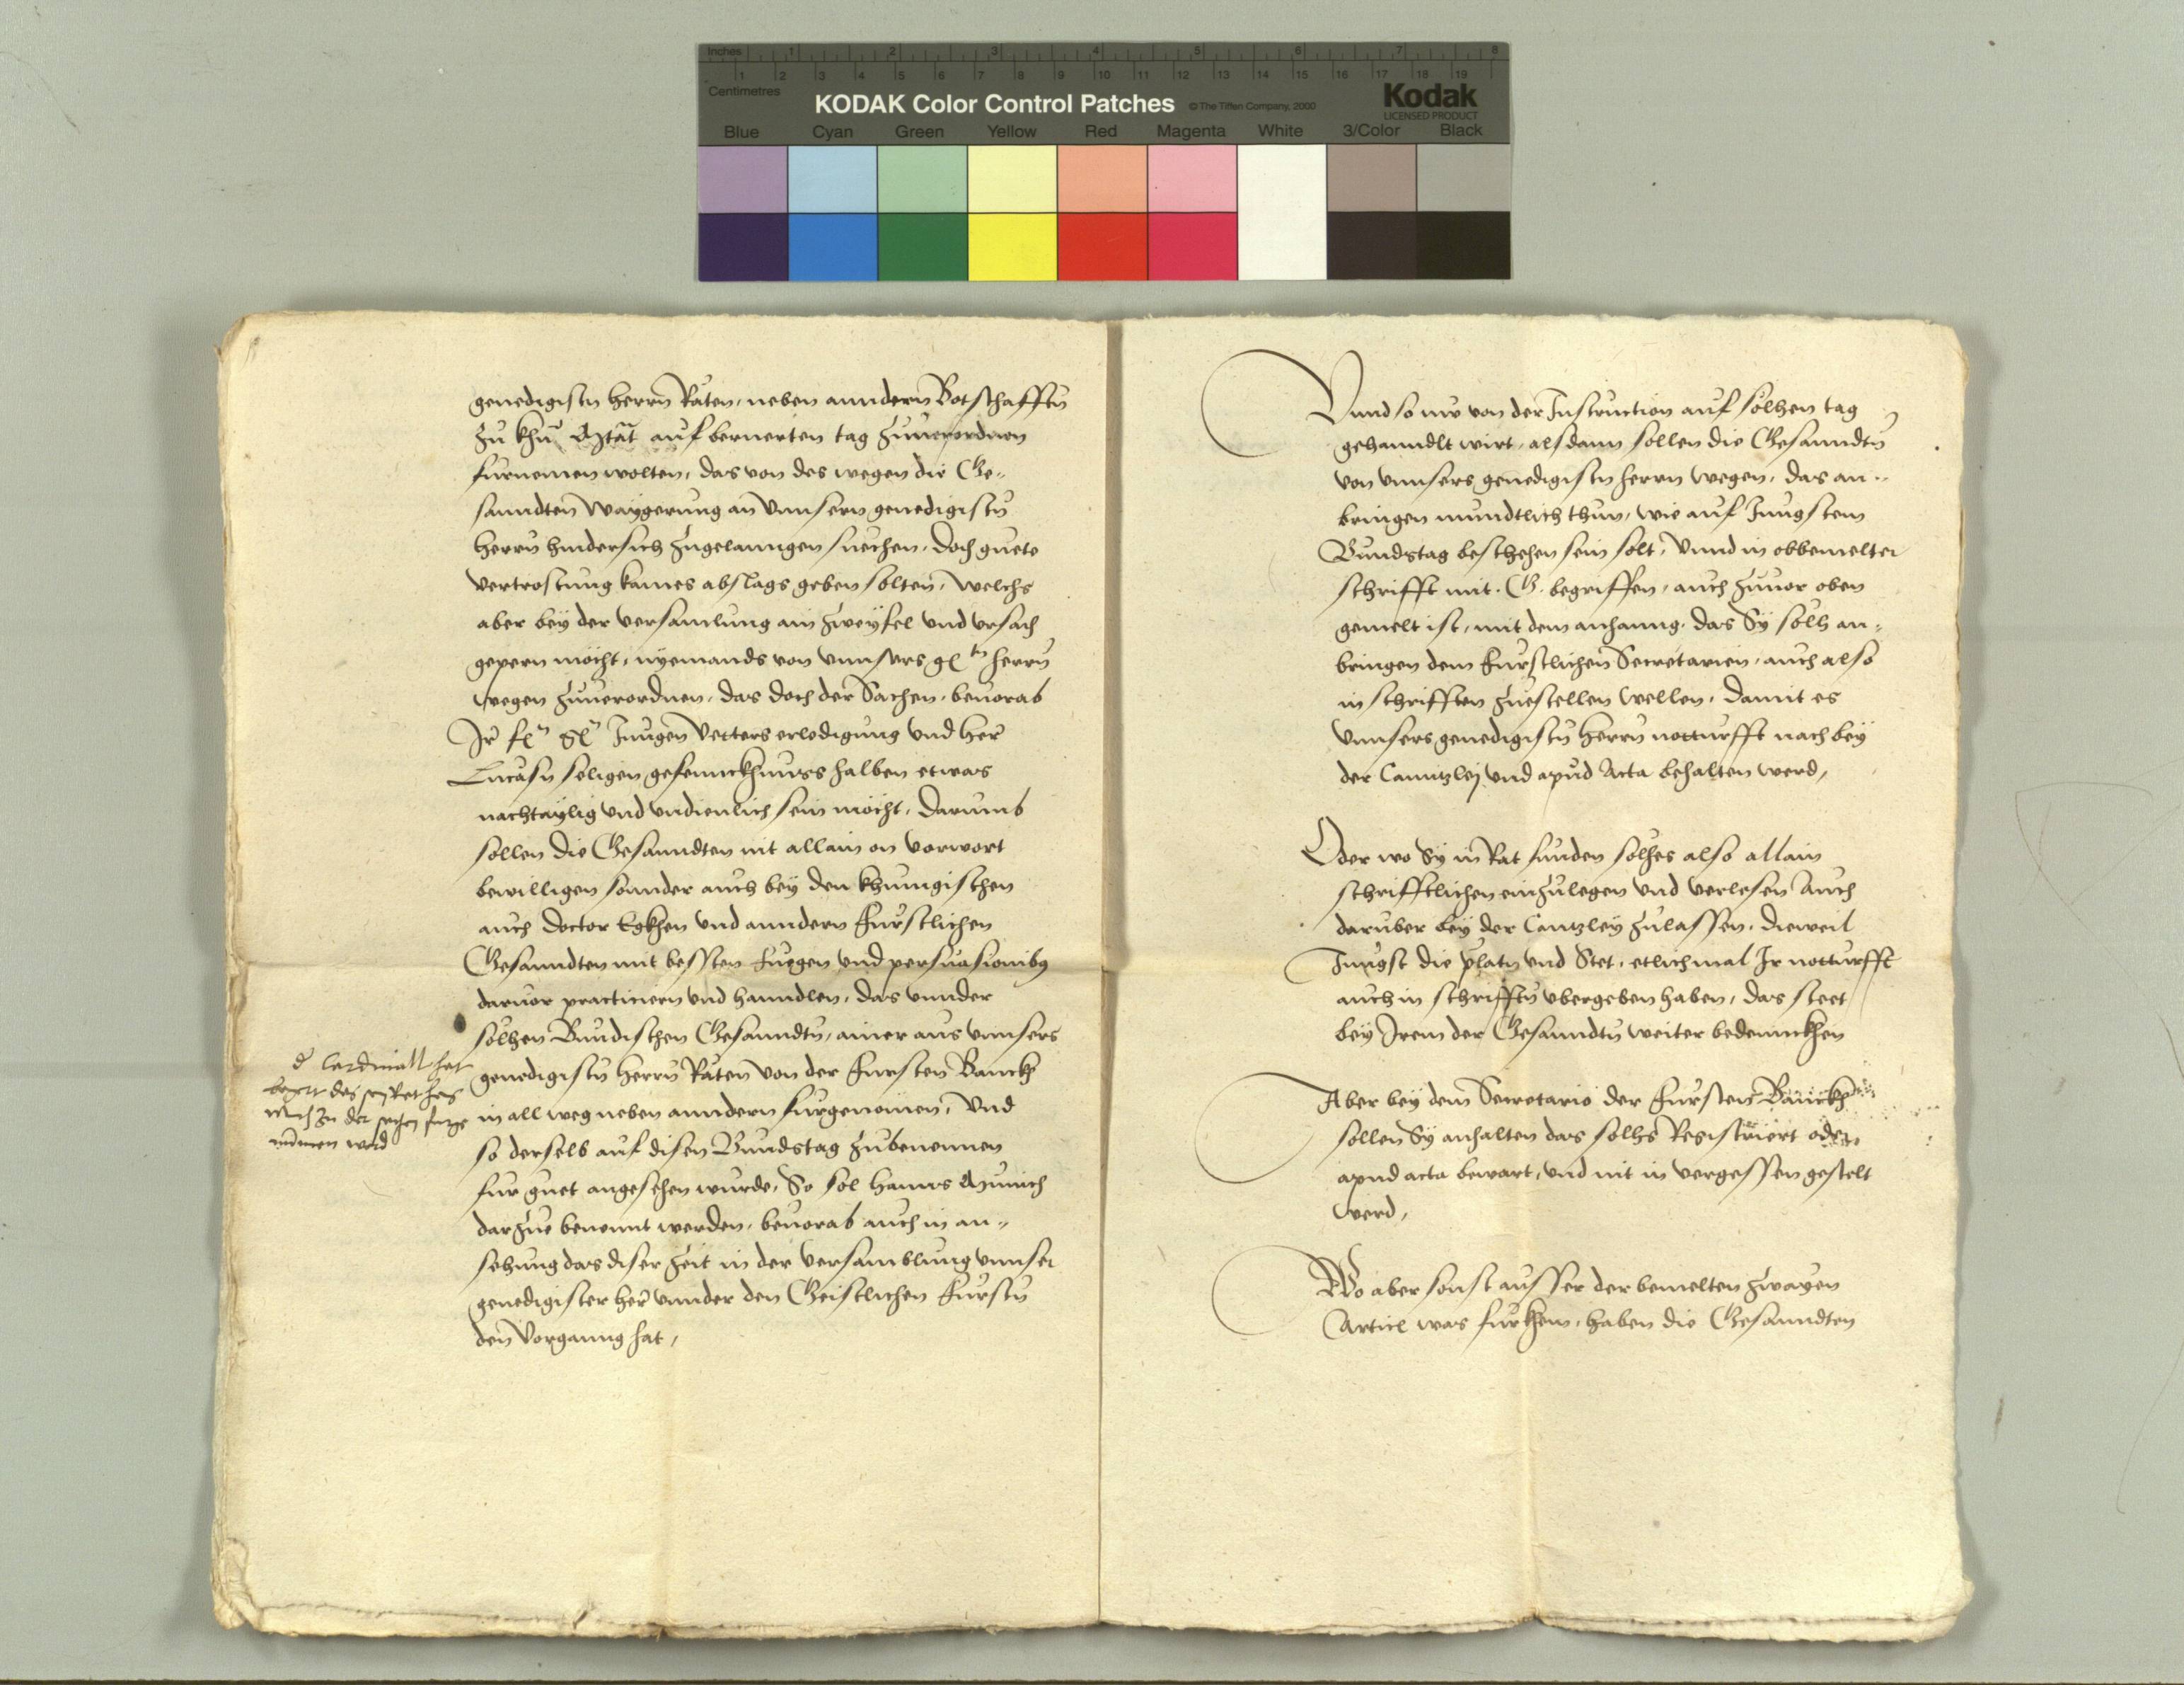 Inches 1 2 3 4 5 6 7 8
1 2 3 4 5 6 7 8 9 10 11 12 13 14 15 16 17 18 19
Centimetres
KODAK Color Control Patches © The Tiffen Company, 2000 Kodak
LICENSED PRODUCT
Blue Cyan Green Yellow Red Magenta White 3/Color Black
genedigistn herrn Räten, neben anndern Botschafftn
zu khu. Mtät auf beruerten tag zuuerordnen
furnemen wolten, das von des wegen die Ge-
sanndten waygerung an vnnsern genedigistn
herrn hindersich zugelanngen suechen, doch guete
vertrostung kaines abslags geben solten, welchs
aber bey der versamlung ain zweyfel vnd vrsach
gepern möcht, nyemands von vnnsers gt herrn
wegen zuuerordnen, das doch der Sachen, beuorab
Ir f. g. Jungen Vetters erledigung vnd her
Lucasn seligen gefennckhnuss halben etwas
nachtaylig vnd vndienlich sein möcht, Darumb
sollen die Gesanndten nit allain on vorwort
bewilligen sonnder auch bey den khunigischen
auch doctor Egkhen vnd anndern Furstlichen
Gesanndten mit bessten fuegen vnd persuasionibus
daruor practiciern vnd hanndlen, das vnnder
solhen Bundischen Gesanndtn, ainer aus vnnsers
genedigistn herrn Räten von der Fursten Banckh
in all weg neben anndern furgenomen, Vnd
so derselb auf disen Bundstag zubenennen
fur guet angesehen wurde, So sol Hanns Munich
darzue benennt werden, beuorab auch in an-
sehung das diser zeit in der versamblung vnnser
genedigister her vnnder den Geistlichen Furstn
den Vorganng hat,
d Cardinall hat
begert das
auch zu der sachen furge
numen werd
Vnnd so nu von der Instruction auf solhen tag
gehanndlt wirt, alsdann sollen die Gesanndtn
von vnnsers genedigistn herrn wegen, das an-
bringen mundtlich thun, wie auf Jungstem
Bundstag beschehen sein solt, Vnnd in obbemelter
schrifft mit .G. begriffen, auch zuuor oben
gemelt ist, mit dem anhanng, das Sy solh an-
bringen dem Furstlichen Secretarien, auch also
in schrifften zuestellen wellen, damit es
vnnsers genedigistn herrn notturfft nach bey
der Canntzley vnd apud Acta behalten werd,
Oder wo Sy in Rat funden solhes also allain
schrifftlichen einzulegen vnd verlesen Auch
daruber bey der Cantzley zulassen, dieweil
Jungst die Platn vnd Stet, etlichmal Ir notturfft
auch in schrifftn vbergeben haben, das steet
bey Irem der Gesanndtn weiter bedennckhen
Aber bey dem Secretario der Fursten Banckh
sollen Sy anhalten das solhs Registriert oder
apud acta bewart, vnd nit in vergessen gestelt
werd,
Wo aber sonst ausser der bemelten zwayen
Articl was furkhem, haben die Gesanndten